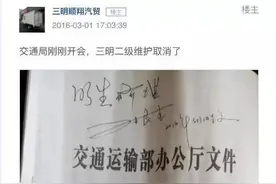 三明顺翔汽贸 楼主 楼主
2016-03-01 17:03:39
交通局刚刚开会，三明二级维护取消了
交通运输部办公厅文件